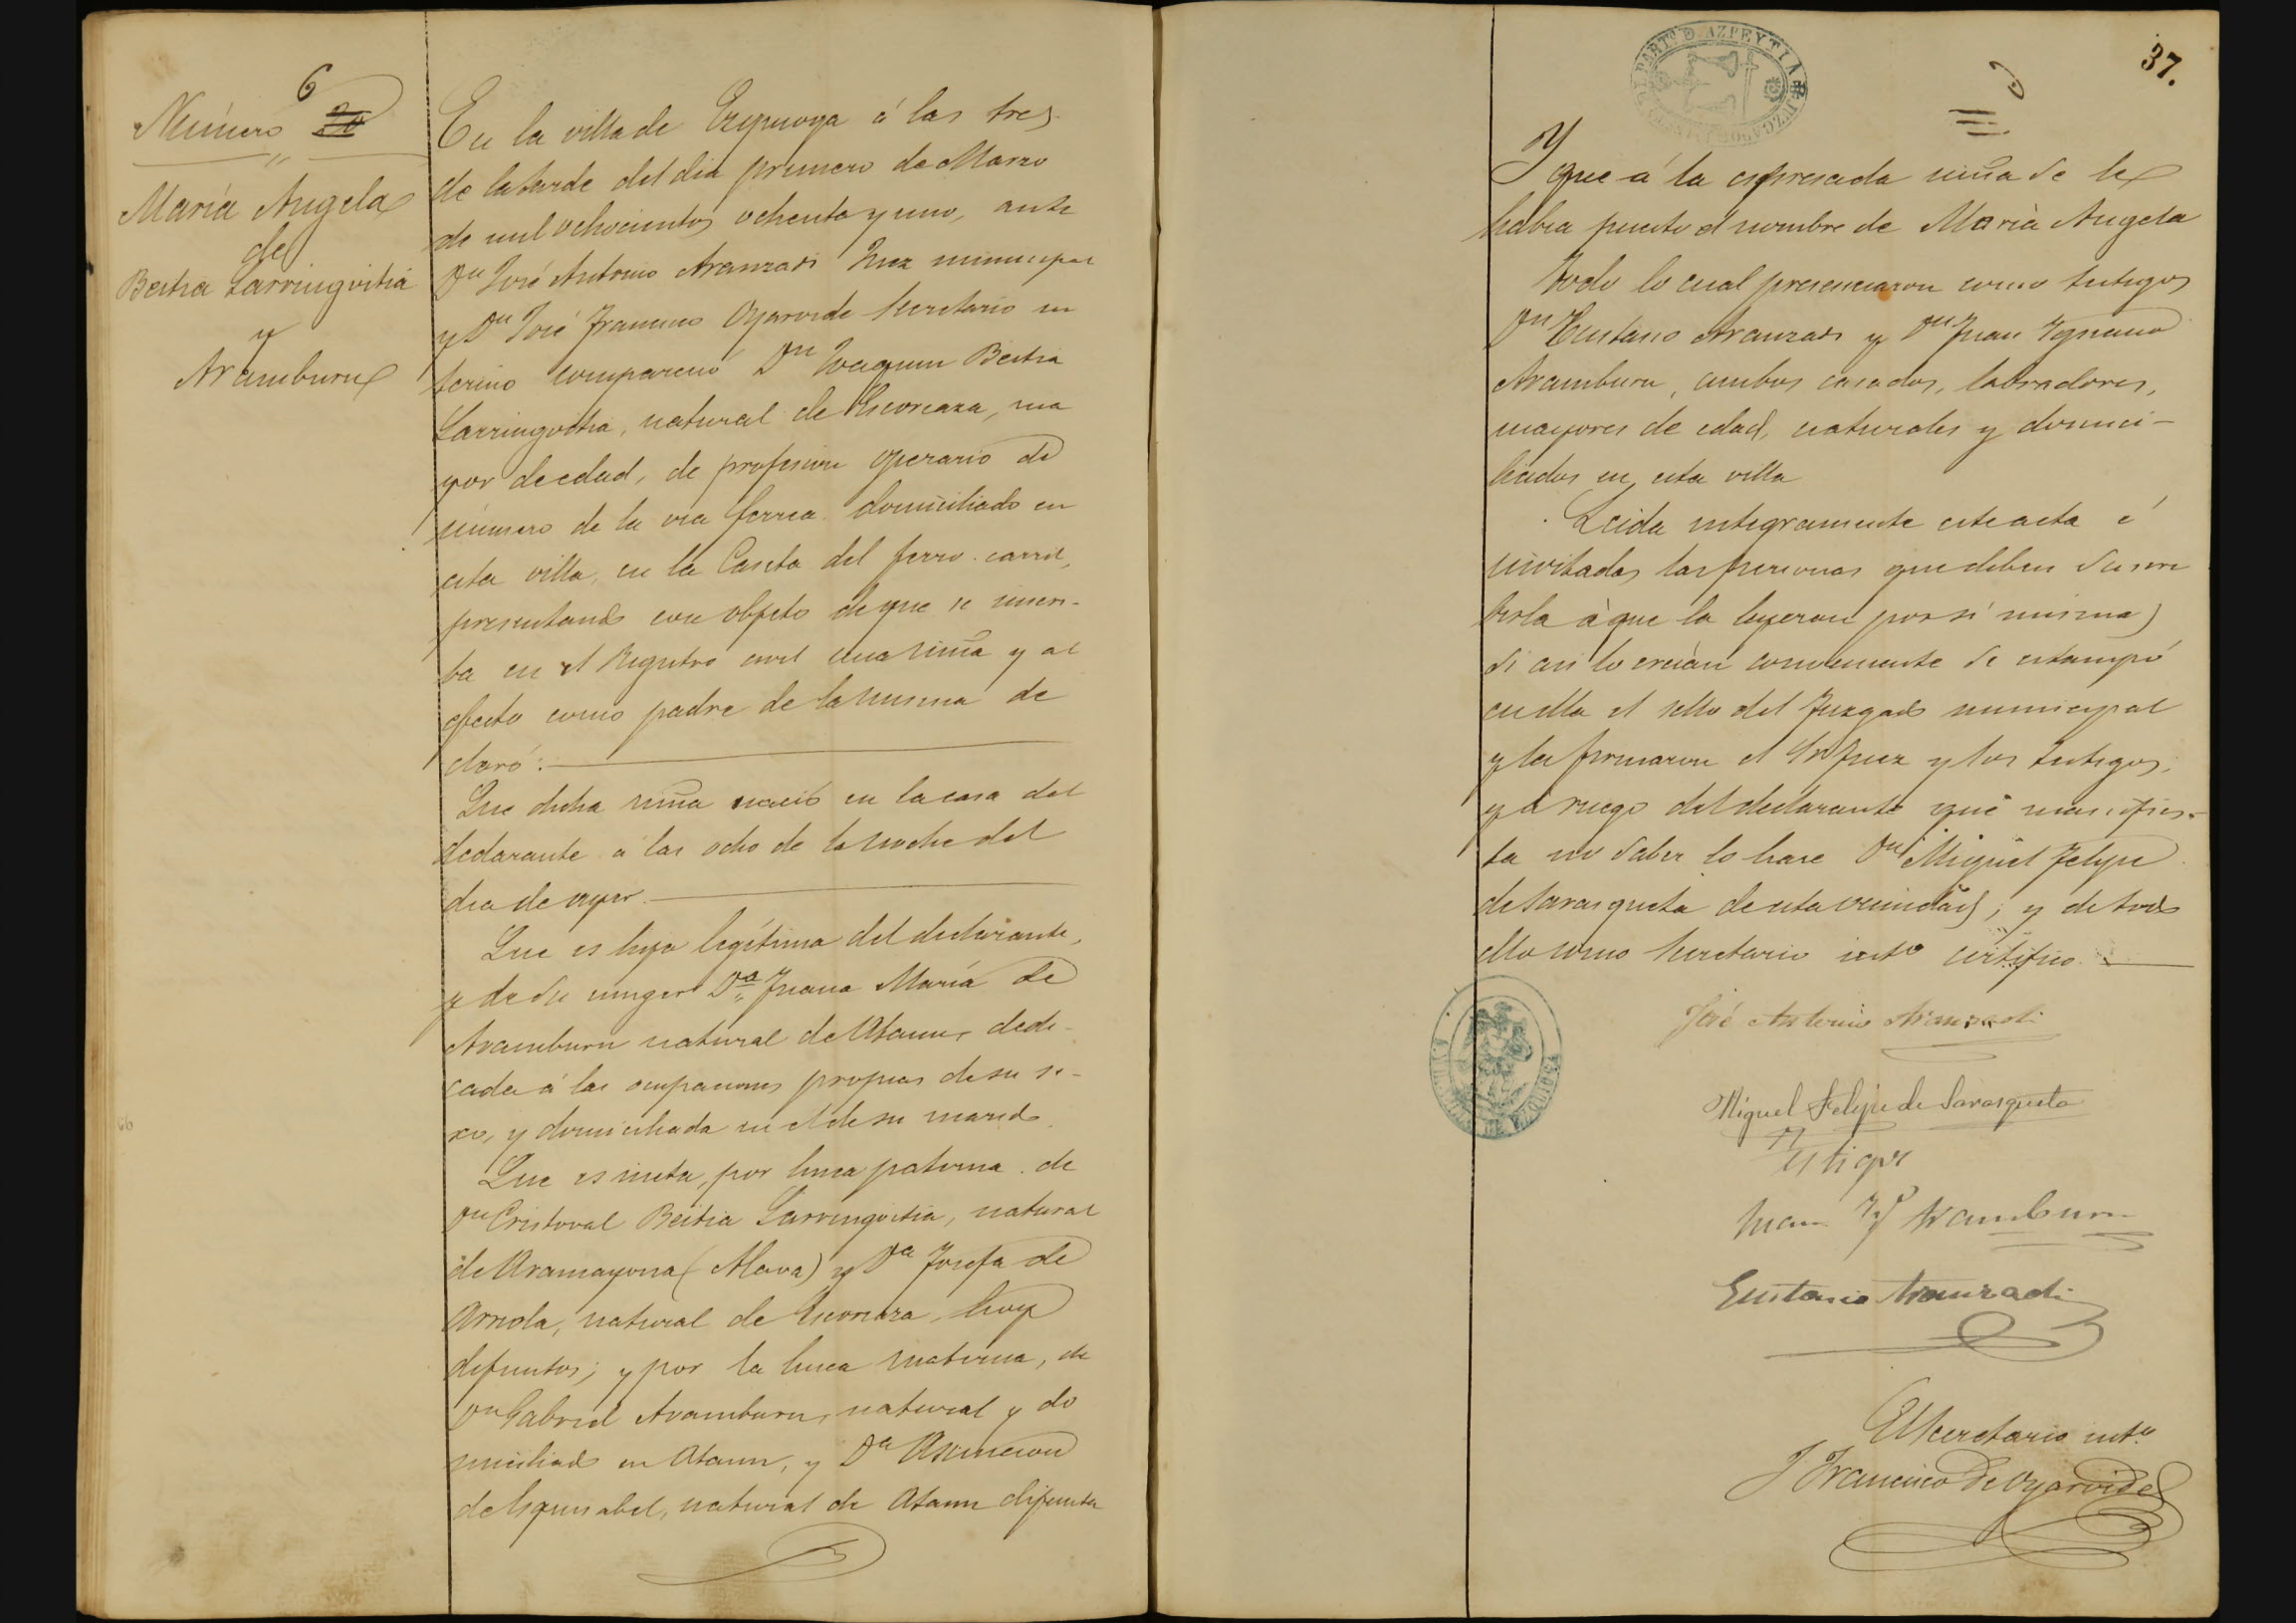 6
Número 20
María Angela
de
Beitia Larringoitia
y
Aramburu
En la villa de Ezquioga á las tres
de la tarde del dia primero de Marzo
de mil ochocientos ochenta y uno, ante
Dn José Antonio Aranzadi Juez municipal
y Dn José Francisco Oyarvide Secretario in
terino compareció Dn Joaquin Beitia
Larringoitia, natural de Escoriaza, ma
yor de edad, de profesion operario de
número de la via ferrea domiciliado en
esta villa, en la Caseta del ferro-carril,
presentando con objeto de que se inscri-
ba en el Registro civil una niña y al
efecto como padre de la misma de
claró:
Que dicha niña nació en la casa del
declarante á las ocho de la noche del
dia de ayer.
Que es hija legítima del declarante,
y de su muger Da Juana María de
Aramburu natural de Ataun, dedi-
cada á las ocupaciones propias de su se-
xo, y domiciliada en el de su marido.
Que es nieta, por linea paterna de
Dn Cristoval Beitia Larringoitia, natural
de Aramayona (Alava) y Da Josefa de
Arriola, natural de Escoriaza, hoy
difuntos; y por la linea materna, de
Dn Gabriel Aramburu, natural y do
miciliado en Ataun, y Da Asuncion
de natural de Ataun difunta
37.
PARTº D. AZPEYTIA
Y que á la espresada niña se le
habia puesto el nombre de María Angela
Todo lo cual presenciaron como testigos
Dn Eustasio Aranzadi y Dn Juan Ygnacio
Aramburu, ambos casados, labradores,
mayores de edad, naturales y domici-
liados en esta villa
Leida integramente este acta é
invitadas las personas que deben suscri
birla á que la leyeran por sí mismas
si asi lo creían conveniente se estampó
en ella el sello del Juzgado municipal
y la firmaron el Sr Juez y los testigos,
y á ruego del declarante que manifies-
ta no saber lo hace Dn Miguel Felipe
de Sarasqueta de esta vecindad; y de todo
ello como Secretario intº certifico.
José Antonio Aranzadi
Miguel Felipe de Sarasqueta
Testigo
Juan Yg Aramburu
Eustasio Aranzadi
El Secretario intº
J Francisco de Oyarvide